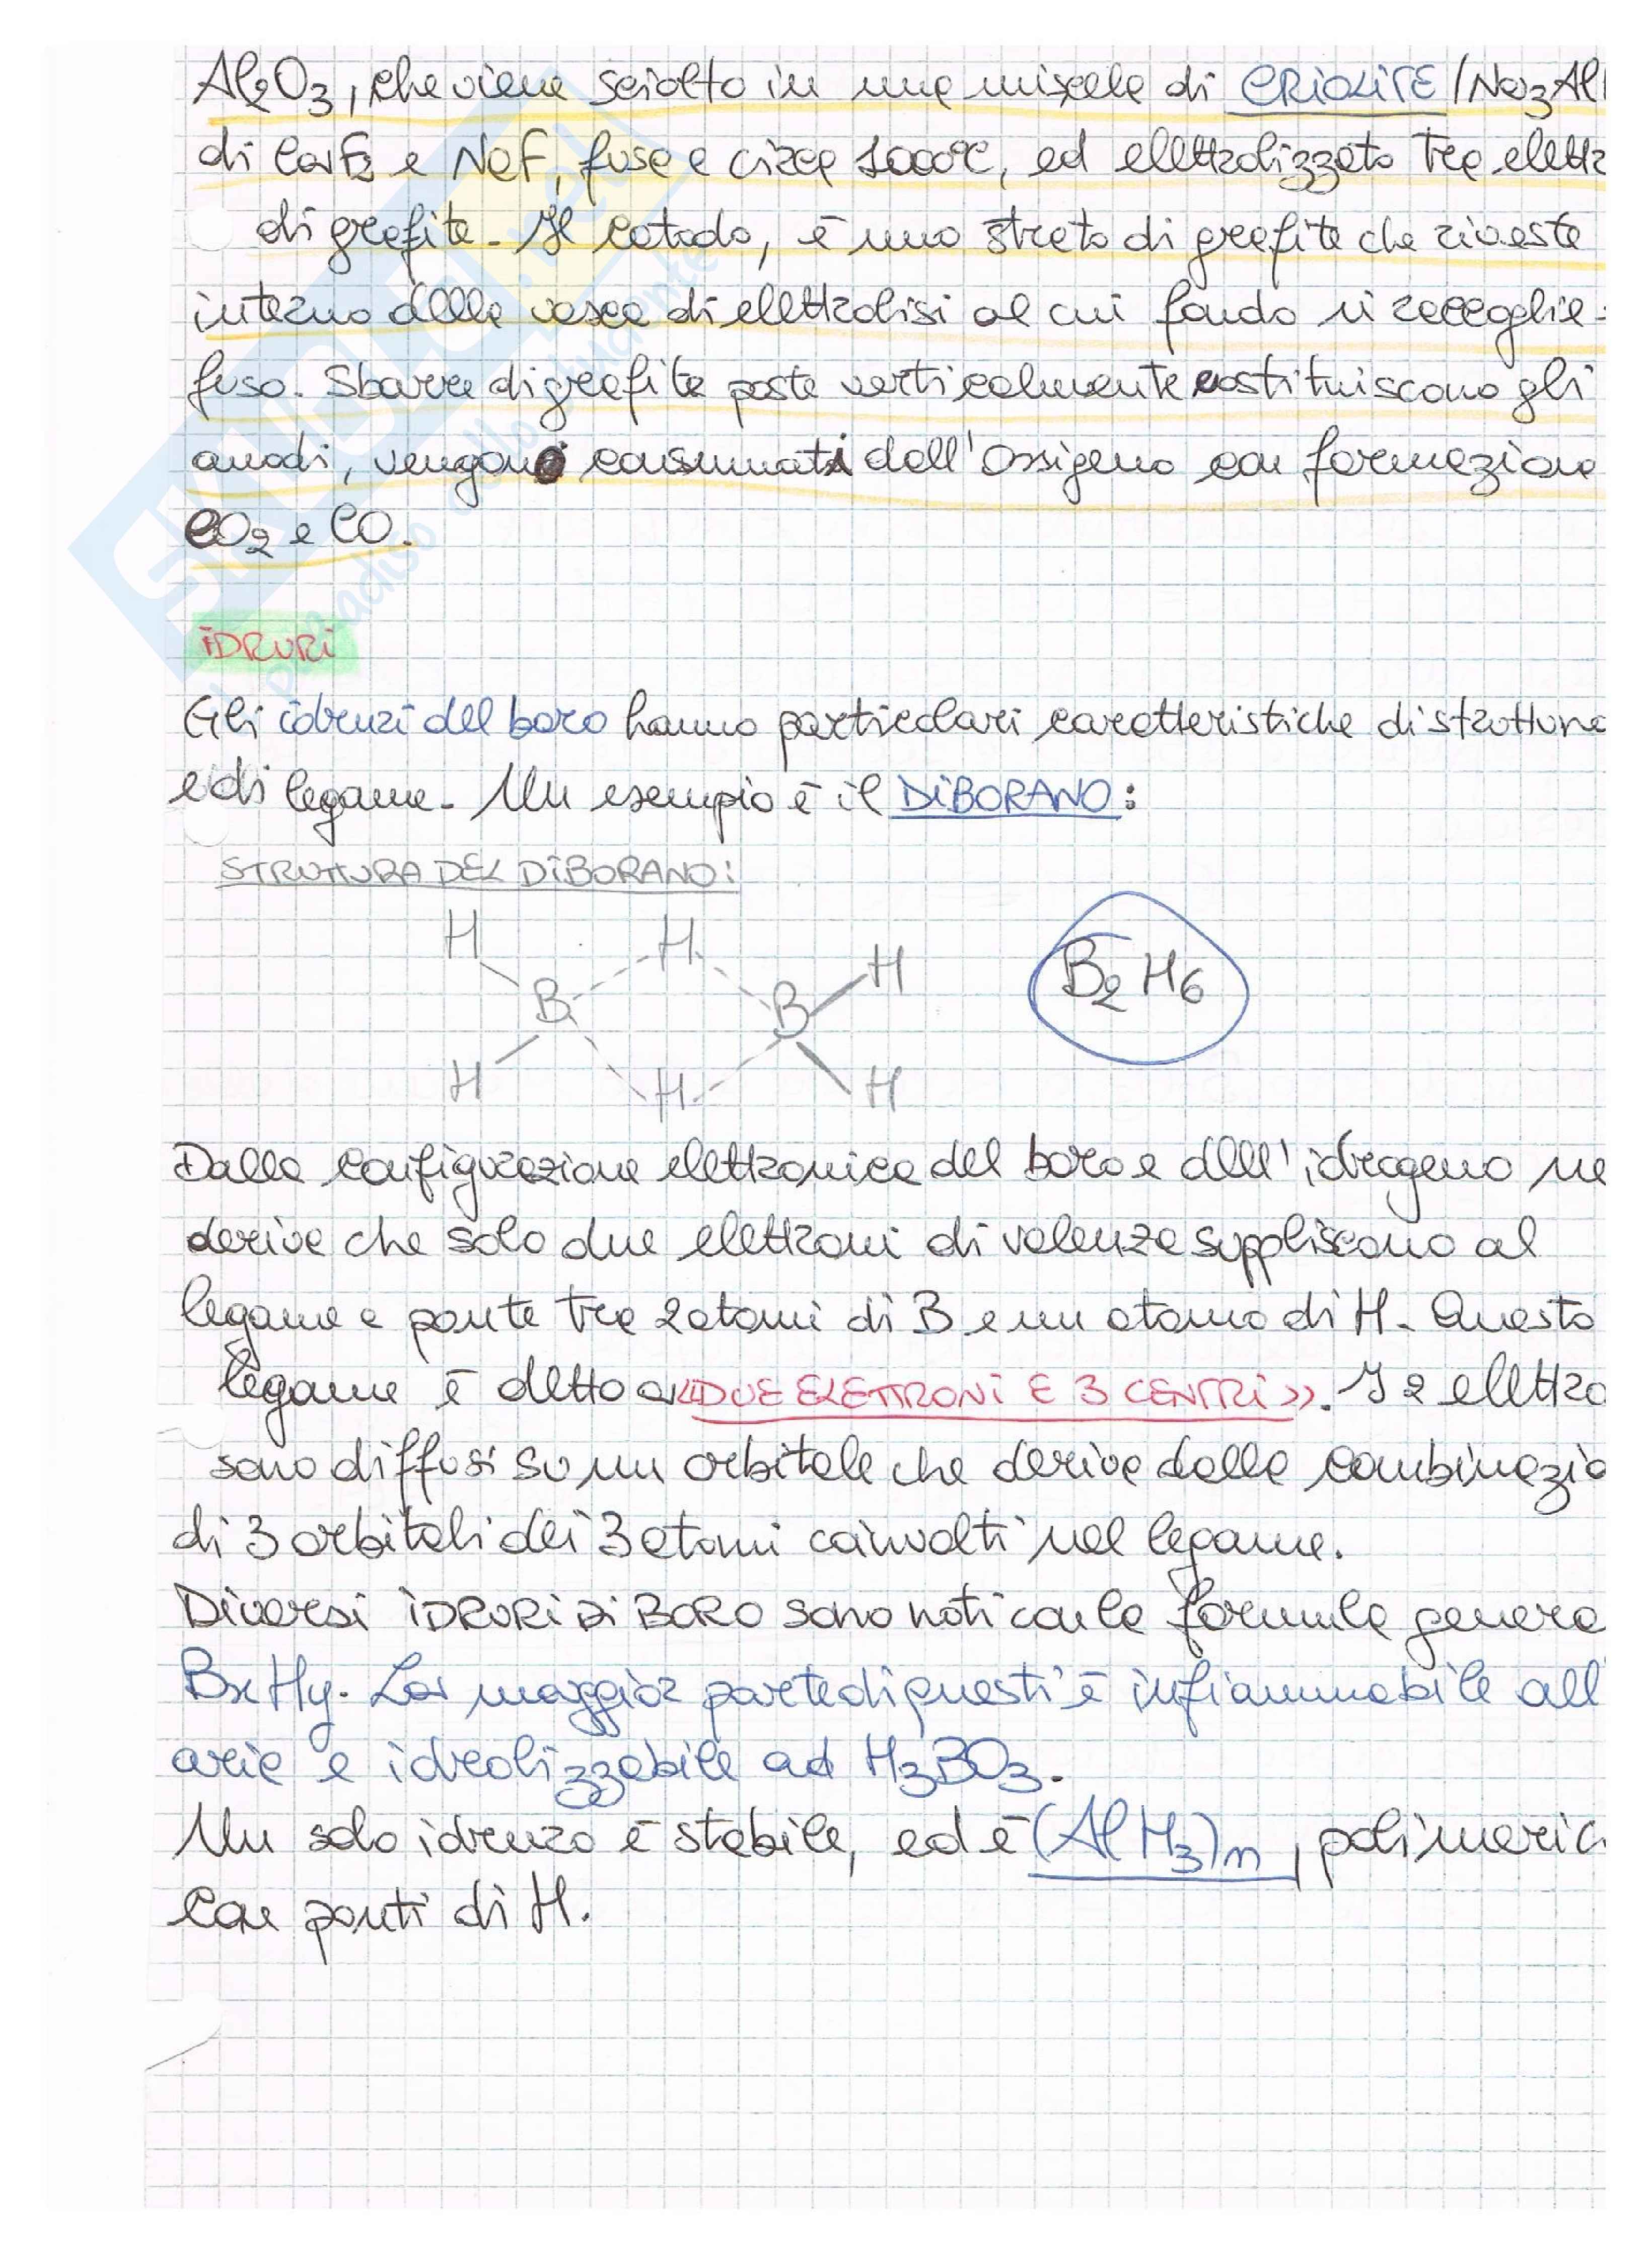 Al2O3, che viene sciolto in una miscela di CRIOLITE (Na3Al
di CaF2 e NaF, fusa a circa 1000°C, ed elettrolizzato tra elettr
di grafite. Il catodo, è uno strato di grafite che riveste
interno della vasca di elettrolisi al cui fondo si raccoglie
fuso. Sbarre di grafite poste verticalmente costituiscono gli
anodi, vengono consumati dall'ossigeno con formazione
CO2 e CO.
iDRURi
Gli idruri del boro hanno particolari caratteristiche di struttura
e di legame. Un esempio è il DiBORANO:
STRUTTURA DEL DiBORANO:
H H H
B B
H H H
B2H6
Dalla configurazione elettronica del boro e dell'idrogeno ne
deriva che solo due elettroni di valenza suppliscono al
legame a ponte tra 2 atomi di B e un atomo di H. Questo
legame è detto a «DUE ELETTRONi E 3 CENTRi». I 2 elettro
sono diffusi su un orbitale che deriva dalla combinazio
di 3 orbitali dei 3 atomi coinvolti nel legame.
Diversi iDRURi Di BORO sono noti con la formula genera
BxHy. La maggior parte di questi è infiammabile all'
aria e idrolizzabile ad H3BO3.
Un solo idruro è stabile, ed è (AlH3)n, polimeric
con ponti di H.
SKUOLA.net
il paradiso dello studente